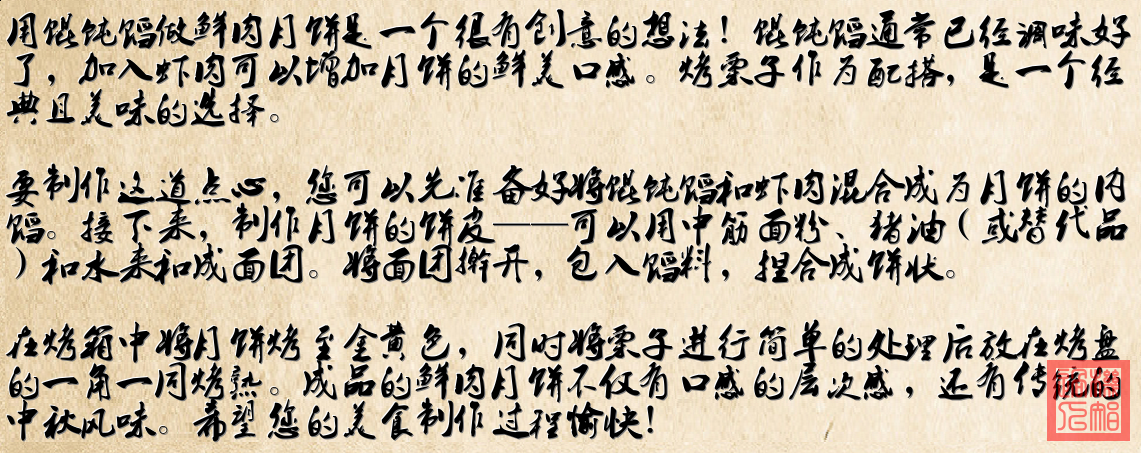 用馄饨馅做鲜肉月饼是一个很有创意的想法！馄饨馅通常已经调味好
了，加入虾肉可以增加月饼的鲜美口感。烤栗子作为配搭，是一个经
典且美味的选择。
要制作这道点心，您可以先准备好将馄饨馅和虾肉混合成为月饼的内
馅。接下来，制作月饼的饼皮——可以用中筋面粉、猪油（或替代品
）和水来和成面团。将面团擀开，包入馅料，捏合成饼状。
在烤箱中将月饼烤至金黄色，同时将栗子进行简单的处理后放在烤盘
的一角一同烤熟。成品的鲜肉月饼不仅有口感的层次感，还有传统的
中秋风味。希望您的美食制作过程愉快！